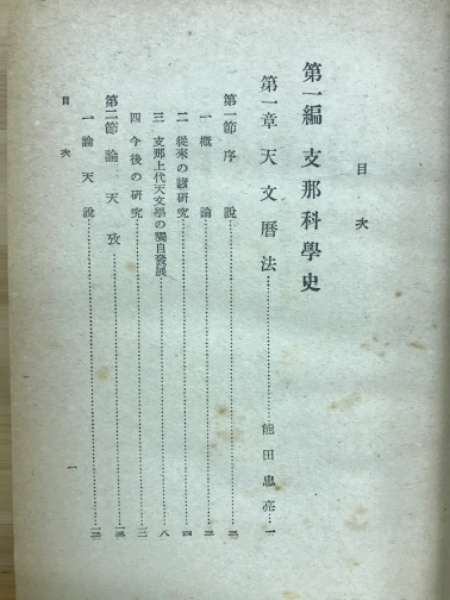 目次
第一編 支那科學史
第一章 天文曆法……能田忠亮…一
第一節 序說……三
一 概論……三
二 從來の諸研究……四
三 支那上代天文學の獨自發展……八
四 今後の研究……一二
第二節 論天攷……
一 論天說……
目次 一